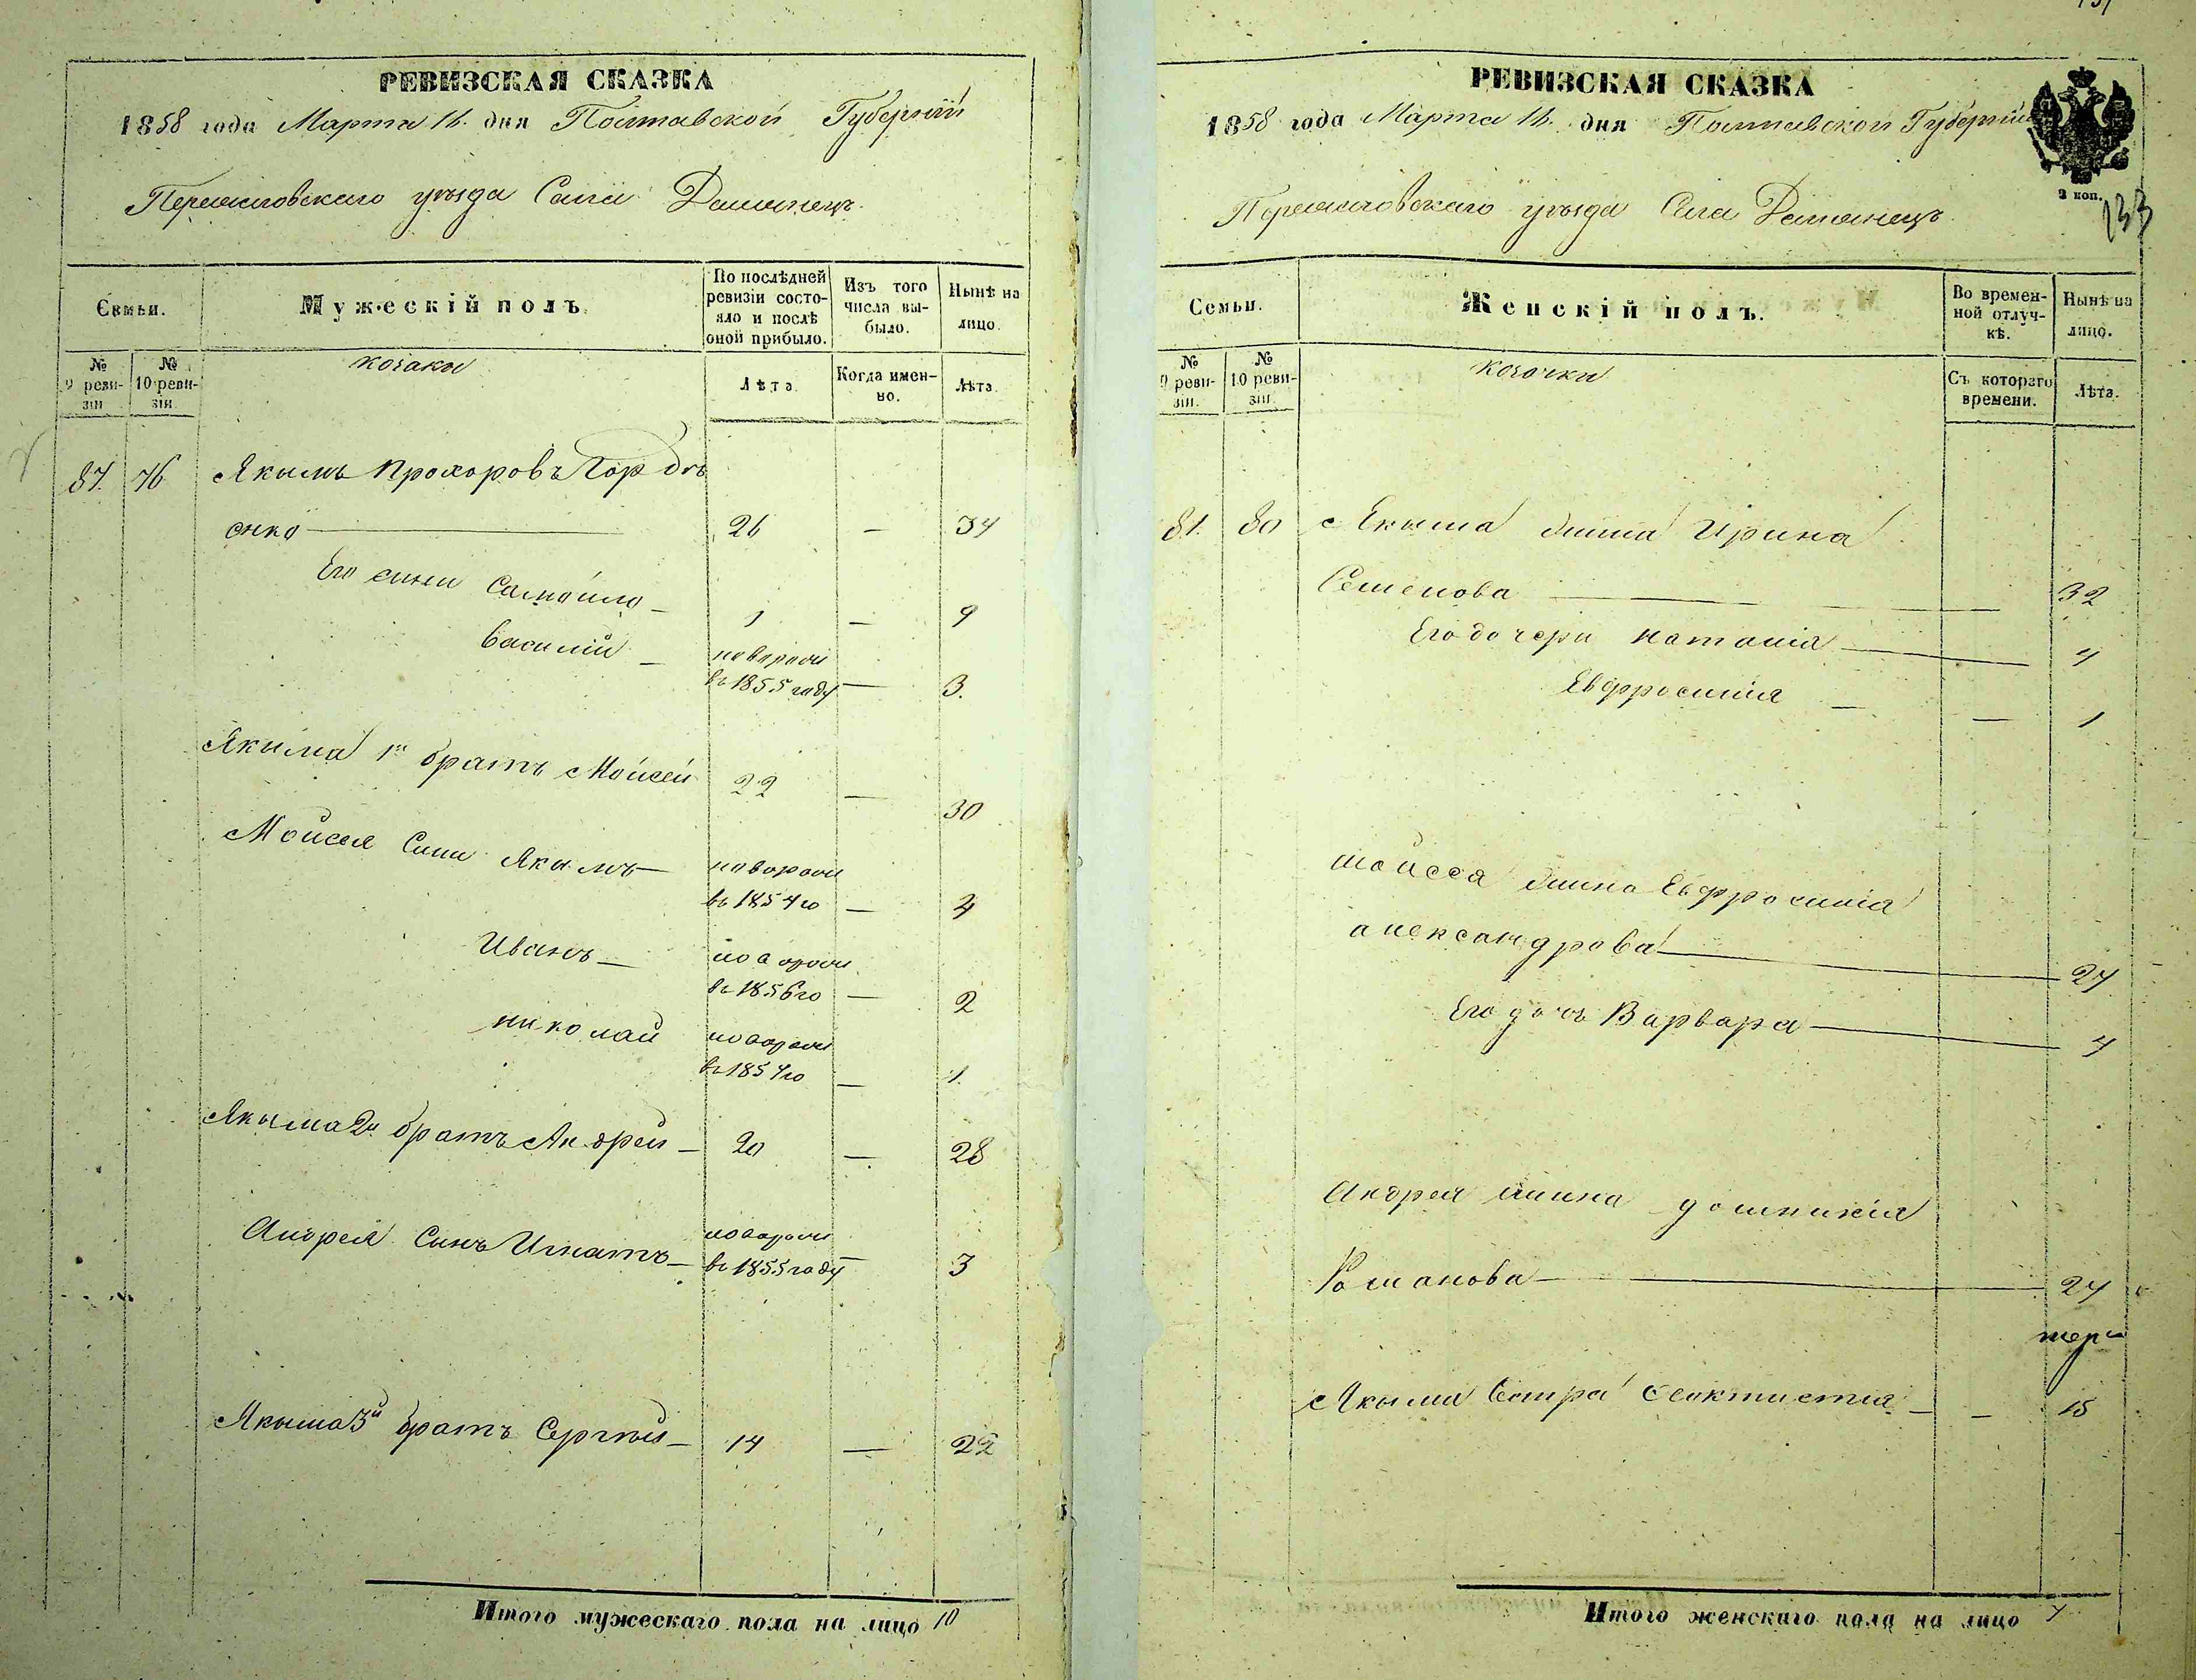 РЕВИЗСКАЯ СКАЗКА
1858 года Марта 16 дня Полтавской Губерніи
Переяславскаго уѣзда Села Деманецъ
Семьи.
Мужескій полъ.
По послѣдней ревизіи состояло и послѣ оной прибыло.
Изъ того числа выбыло.
Нынѣ на лицо.
№ 9 ревизіи.
№ 10 ревизіи.
козаки
Лѣта.
Когда именно.
Лѣта.
Якымъ Прохоровъ Гордѣ
енко 26 — 34
Его сини Самойло — 1 — 9
Василій — новорожи
въ 1855 году — 3.
Якима 1й братъ Мойсей 22 — 30
Мойсея Сини Якымъ — новорожи
въ 1854го — 4
Иванъ — новорожи
въ 1856го — 2
Николай новорожи
въ 1857го — 1.
Якыма 2й братъ Андрей — 20 — 28
Андрея Синъ Игнатъ — новорожи
въ 1855 году — 3
Якыма 3й братъ Сергѣй — 14 — 22
Итого мужескаго пола на лицо 10
РЕВИЗСКАЯ СКАЗКА
1858 года Марта 16 дня Полтавской Губерніи
3 коп.
133
Переяславскаго уѣзда Села Деманецъ
Семьи.
Женскій полъ.
Во временной отлучкѣ.
Нынѣ на лицо.
№ 9 ревизіи.
№ 10 ревизіи.
козачки
Съ котораго времени.
Лѣта.
80 Якыма жина Ирина
Семенова — 32
Его дочери Наталія —
Евфросинія — — 1
Мойсея жина Евфросинія
александрова — 27
Его дочь Варвара —
Андрея жина Домникія
Романова — 24
Якыма Сестра Феоктистія — — 15
Итого женскаго пола на лицо 7